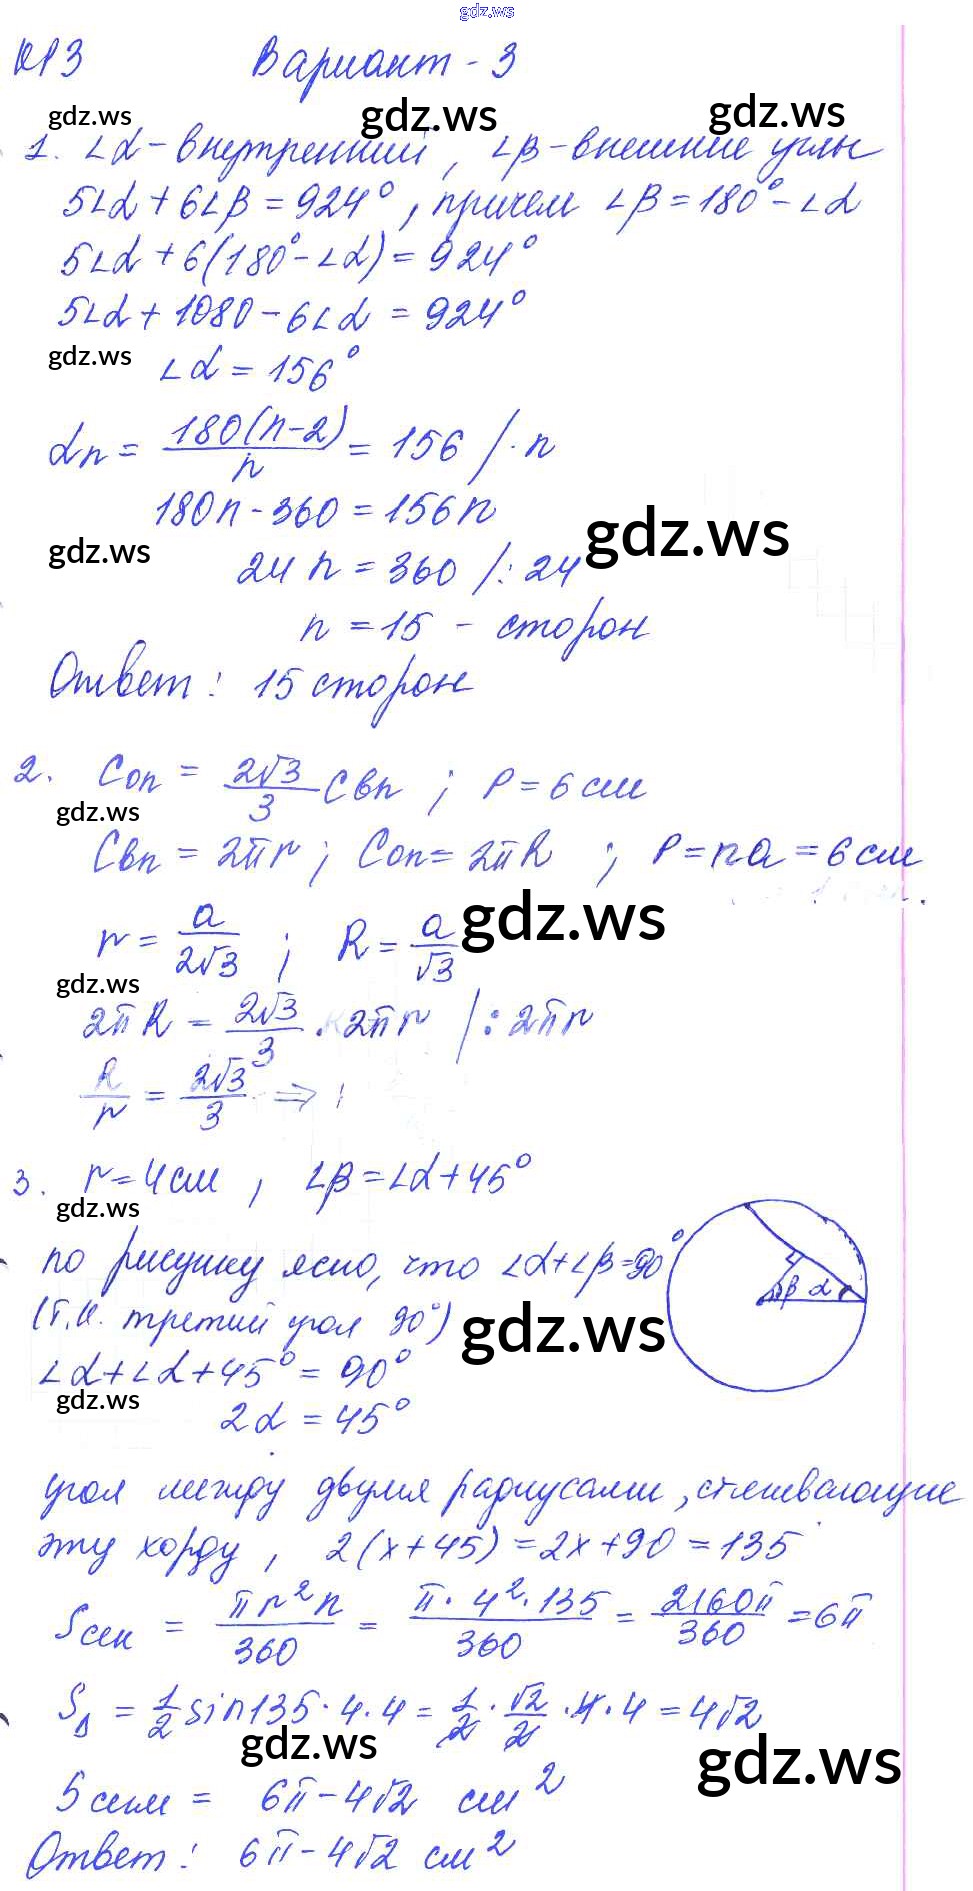 gdz.ws
КР3 Вариант - 3
gdz.ws gdz.ws gdz.ws
1. ∠α - внутренний, ∠β - внешние углы
5∠α + 6∠β = 924°, причем ∠β = 180° - ∠α
5∠α + 6(180° - ∠α) = 924°
5∠α + 1080 - 6∠α = 924°
gdz.ws
∠α = 156°
αn = 180(n-2)/n = 156 / · n
180n - 360 = 156n
gdz.ws gdz.ws
24 n = 360 /: 24
n = 15 - сторон
Ответ: 15 сторон
2. Cоп = 2√3/3 Cвп ; P = 6 см
gdz.ws
Cвп = 2πr ; Cоп = 2πR ; P = na = 6 см
gdz.ws
r = a/2√3 ; R = a/√3
gdz.ws
2πR = 2√3/3 · 2πr /: 2πr
R/r = 2√3/3 ⇒
3. r = 4 см, ∠β = ∠α + 45°
gdz.ws
по рисунку ясно, что ∠α + ∠β = 90°
β α
(т.к. третий угол 90°)
gdz.ws
∠α + ∠α + 45° = 90°
gdz.ws
2α = 45°
угол между двумя радиусами, стягивающие
эту хорду, 2(x + 45) = 2x + 90 = 135
Sсек = πr²n/360 = π · 4² · 135/360 = 2160π/360 = 6π
S∆ = 1/2 sin135 · 4 · 4 = 1/2 · √2/2 · 4 · 4 = 4√2
gdz.ws gdz.ws
Sсегм = 6π - 4√2 см²
Ответ: 6π - 4√2 см²